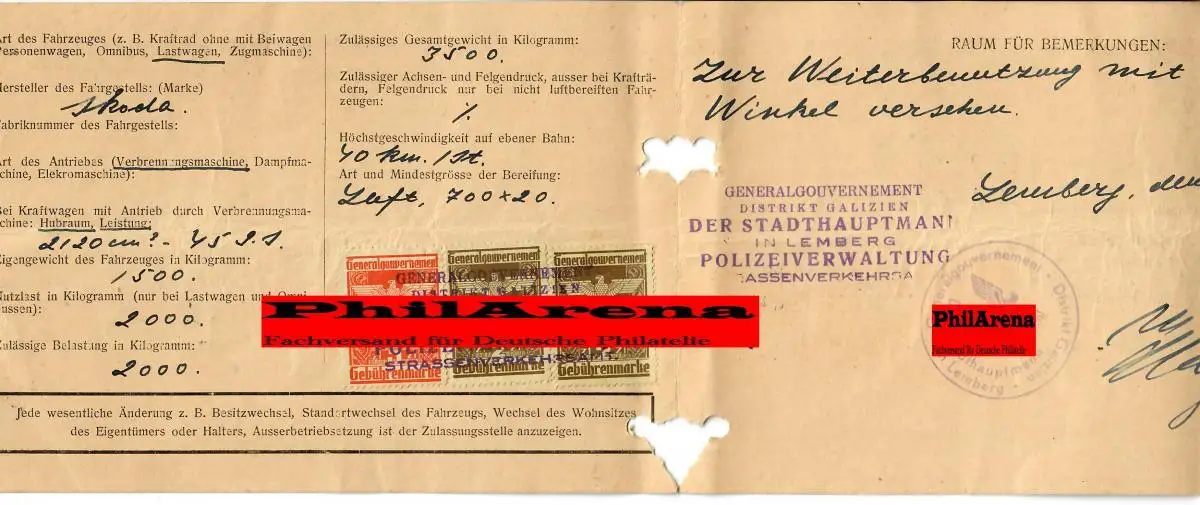 Art des Fahrzeuges (z. B. Kraftrad ohne mit Beiwagen
Personenwagen, Omnibus, Lastwagen, Zugmaschine):
Hersteller des Fahrgestells: (Marke)
Skoda.
Fabriknummer des Fahrgestells:
Art des Antriebas (Verbrennungsmaschine, Dampfma-
chine, Elekromaschine):
Bei Kraftwagen mit Antrieb durch Verbrennungsma-
chine: Hubraum, Leistung:
2120 cm³ - 45 P.S.
Eigengewicht des Fahrzeuges in Kilogramm:
1500.
Nutzlast in Kilogramm (nur bei Lastwagen und Omni-
bussen):
2000.
Zulässige Belastung in Kilogramm:
2000.
Zulässiges Gesamtgewicht in Kilogramm:
3500.
Zulässiger Achsen- und Felgendruck, ausser bei Krafträ-
dern, Felgendruck nur bei nicht luftbereiften Fahr-
zeugen:
%
Höchstgeschwindigkeit auf ebener Bahn:
40 km./St.
Art und Mindestgrösse der Bereifung:
Luft, 700 x 20.
Generalgouvernement Generalgouvernement Generalgouvernement
GENERALGOUVERNEMENT
DISTRIKT GALIZIEN
PhilArena
Fachversand für Deutsche Philatelie
STRASSENVERKEHRSAMT
Gebührenmarke Gebührenmarke Gebührenmarke
Jede wesentliche Änderung z. B. Besitzwechsel, Standortwechsel des Fahrzeugs, Wechsel des Wohnsitzes
des Eigentümers oder Halters, Ausserbetriebsetzung ist der Zulassungsstelle anzuzeigen.
RAUM FÜR BEMERKUNGEN:
Zur Weiterbenutzung mit
Winkel versehen.
Lemberg, den
GENERALGOUVERNEMENT
DISTRIKT GALIZIEN
DER STADTHAUPTMAN
IN LEMBERG
POLIZEIVERWALTUNG
ASSENVERKEHRSA
Generalgouvernement · Distrikt Galizien
Lemberg
PhilArena
Fachversand für Deutsche Philatelie